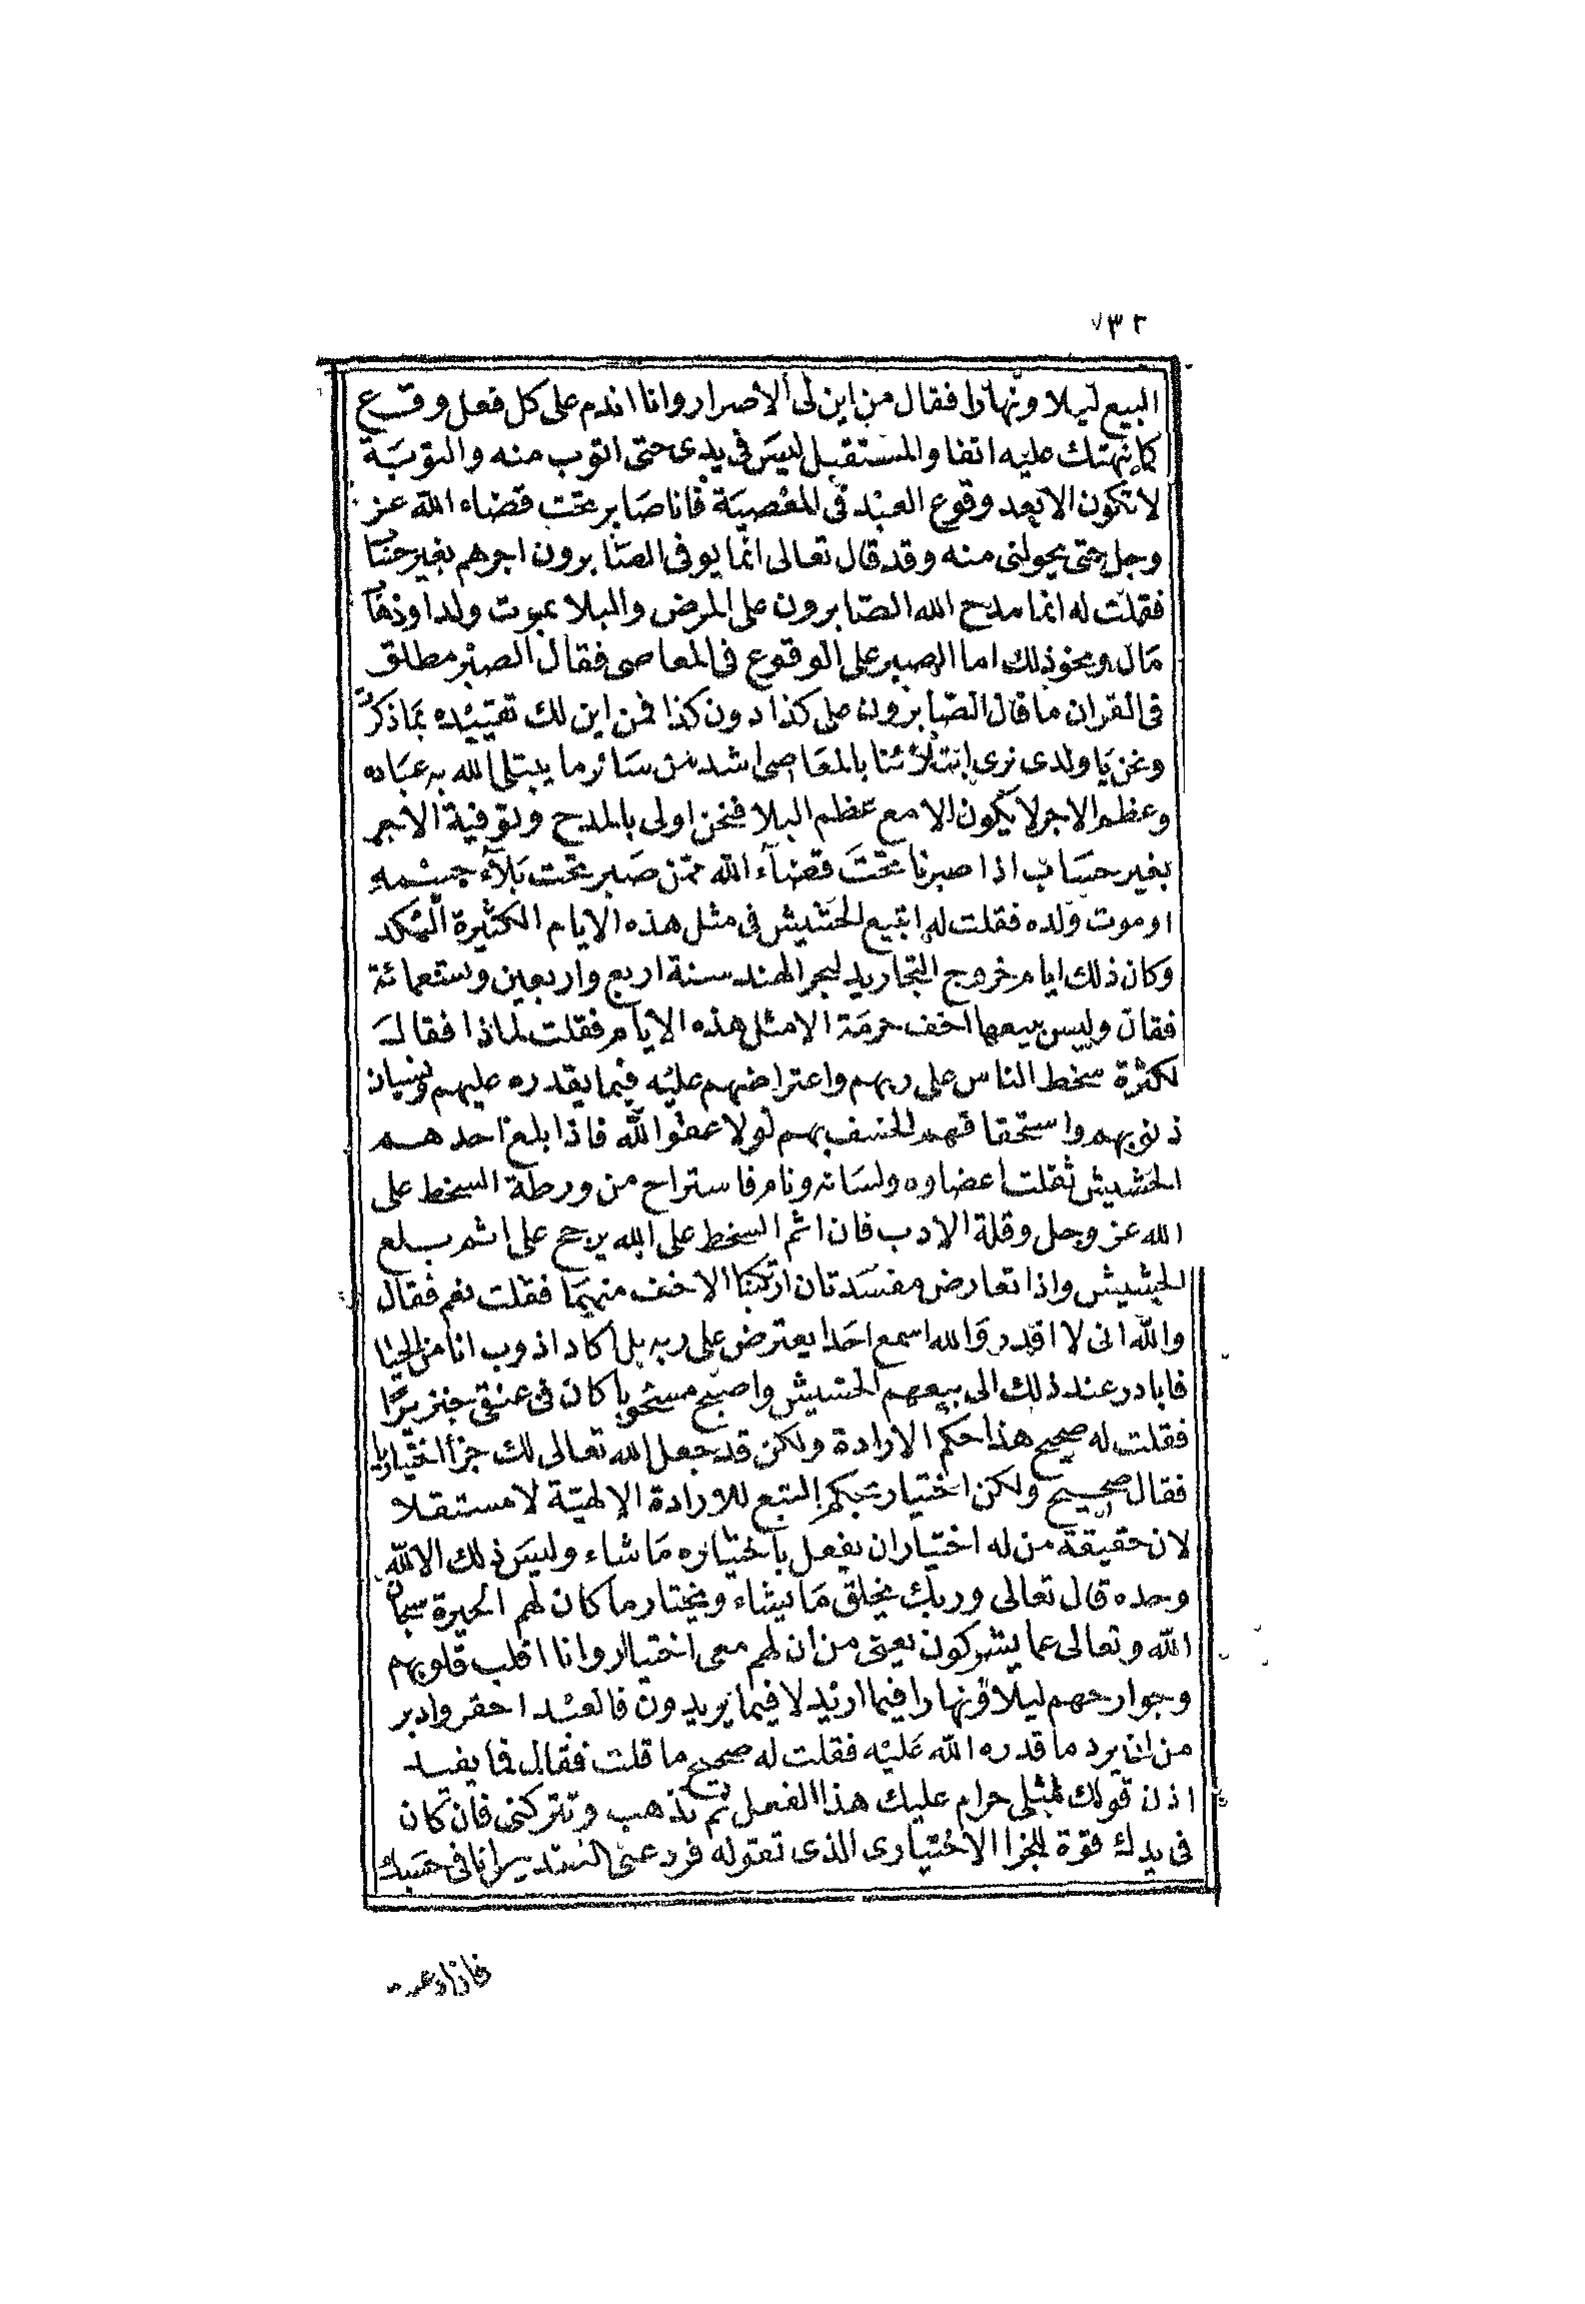 ٧٣٢
البيع ليلا ونهارا فقال من اين لى الاصرار وانا اندم على كل فعل وقع
كما نبهتك عليه انفا والمستقبل ليس فى يدى حتى اتوب منه والتوبة
لا تكون الا بعد وقوع العبد فى المعصية فانا صابر تحت قضاء الله عز
وجل حتى يحولنى منه وقد قال تعالى انما يوفى الصابرون اجرهم بغير حساب
فقلت له انما مدح الله الصابرون على المرض والبلا بموت ولد او ذهاب
مال ونحو ذلك اما الصبر على الوقوع فى المعاصى فقال الصبر مطلق
فى القران ما قال الصابرون على كذا دون كذا فمن اين لك تقييده بما ذكر
ونحن يا ولدى نرى ابتلائنا بالمعاصى اشد من سائر ما يبتلى الله به عباده
وعظم الاجر لا يكون الا مع عظم البلا فنحن اولى بالمدح وتوفية الاجر
بغير حساب اذا صبرنا تحت قضاء الله ممن صبر تحت بلاء جسمه
او موت ولده فقلت له اتبيع الحشيش فى مثل هذه الايام الكثيرة النكد
وكان ذلك ايام خروج التجاريد لبحر الهند سنة اربع واربعين وتسعمائة
فقال وليس بيعها اخف حرمة الا مثل هذه الايام فقلت لماذا فقال
لكثرة سخط الناس على ربهم واعتراضهم عليه فيما يقدره عليهم ونسيان
ذنوبهم واستحقاقهم الخسف بهم لولا عفو الله فاذا بلع احدهم
الحشيش ثقلت اعضاوه ولسانه ونام فاستراح من ورطة السخط على
الله عز وجل وقلة الادب فان اثم السخط على الله يرجح على اثم بلع
الحشيش واذا تعارض مفسدتان ارتكبنا الاخف منهما فقلت نعم فقال
والله انى لا اقدر والله اسمع احدا يعترض على ربه بل اكاد اذوب انا من الحيا
فابادر عند ذلك الى بيعهم الحشيش واصبح مسخوبا كان فى عنقى جنزيرا
فقلت له صحيح هذا حكم الارادة ولكن قد جعل الله تعالى لك جزأ اختياريا
فقال صحيح ولكن اختيار بحكم التبع للارادة الالهية لا مستقلا
لان حقيقة من له اختيار ان يفعل باختياره ما شاء وليس ذلك الا لله
وحده قال تعالى وربك يخلق ما يشاء ويختار ما كان لهم الخيرة سبحان
الله وتعالى عما يشركون يعنى من ان لهم معى اختيار وانا اقلب قلوبهم
وجوارحهم ليلا ونهارا فيما اريد لا فيما يريدون فالعبد احقر وادبر
من ان يرد ما قدره الله عليه فقلت له صحيح ما قلت فقال فما يفيد
اذن قولك لمثلى حرام عليك هذا الفعل ثم تذهب وتتركنى فان كان
فى يدك قوة للجزا الاختيارى الذى تقوله فرد عنى انا فى حسبك